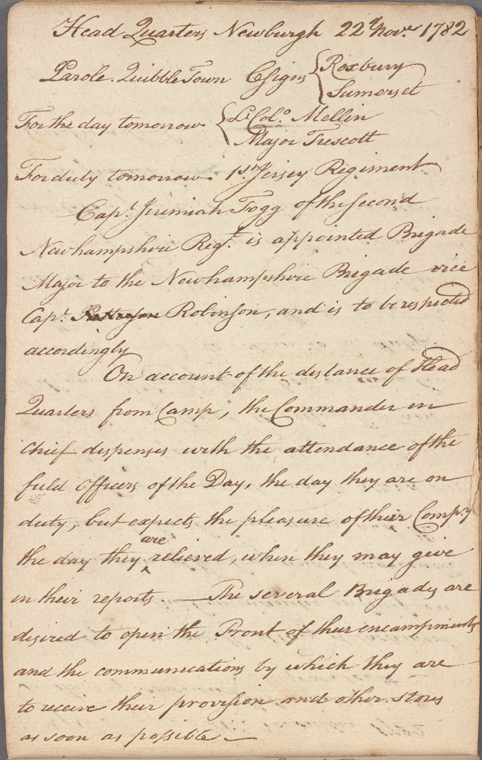 Head Quarters Newburgh 22d Novr 1782
Parole. Quibble Town Csigns { Roxbury
Sumerset
For the day tomorrow { Lt Colo. Mellin
Major Trescott
For duty tomorrow. 1st Jersey Regiment
Capt. Jeremiah Fogg of the Second
Newhampshire Regt. is appointed Brigade
Major to the Newhampshire Brigade vice
Capt. Robinson, and is to be respected
accordingly
On account of the distance of Head
Quarters from Camp, the Commander in
Chief dispenses with the attendance of the
field Officers of the Day, the day they are on
duty, but expects the pleasure of their Compy
the day they are relieved, when they may give
in their reports — The several Brigades are
desired to open the Front of their encampments
and the communications by which they are
to receive their provision and other stores
as soon as possible —